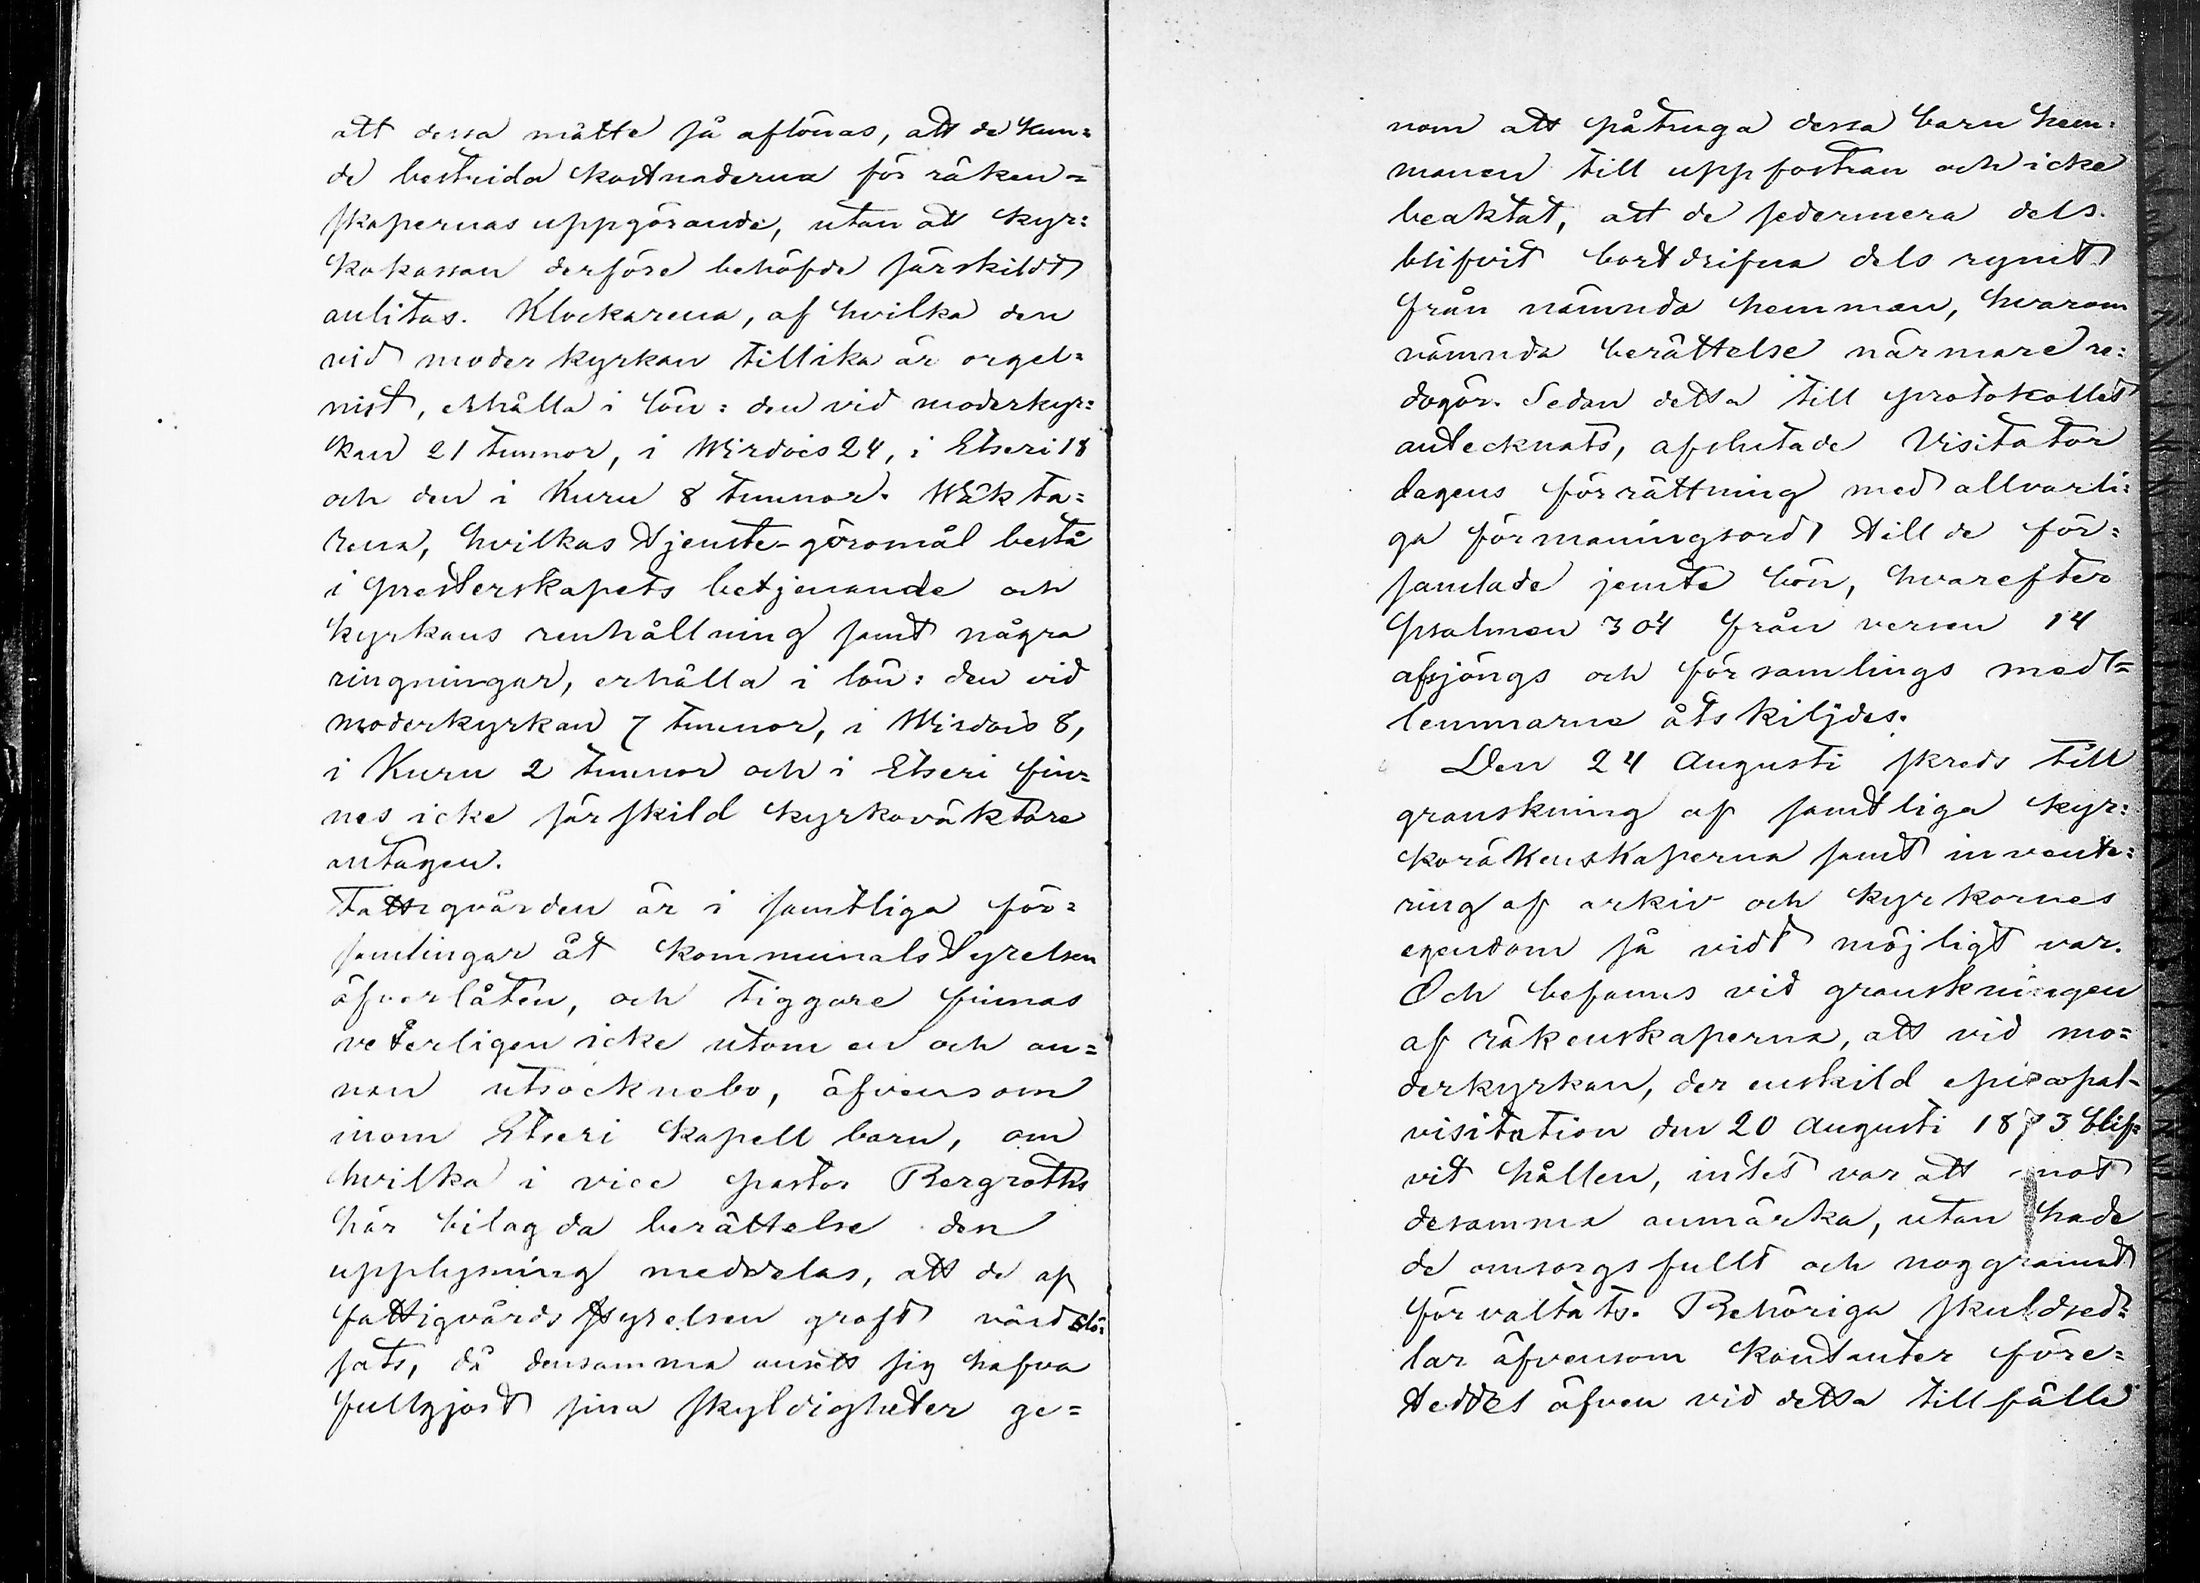 att dessa måtte så aflönas, att de kun=
de bestrida kostnaderna för räken=
skapernas uppgörande, utan att kyr=
kokassan derföre behöfde särskildt
anlitas. Klockarena, af hvilka den
vid moderkyrkan tillika är orgel=
nist, erhålla i lön: den vid moderkyr=
kan 21 tunnor, i Wirdois 24, i Etseri 18
och den i Kuru 8 tunnor. Wäkta=
rena, hvilkas tjenste-göromål bestå
i presterskapets betjenande och
kyrkans renhållning samt några
ringningar, erhålla i lön: den vid
moderkyrkan 7 tunnor, i Wirdois 8,
i Kuru 2 tunnor och i Etseri fin=
nes icke särskild kyrkoväktare
antagen.
Fattigvården är i samtliga för=
samlingar åt kommunalstyrelsen
öfverlåten, och tiggare finnas
veterligen icke utom en och an=
nan utsocknebo, äfvensom
inom Etseri kapell barn, om
hvilka i vice pastor Bergroths
här bilagda berättelse den
upplysning meddelas, att de af
fattigvårdsstyrelsen groft vårdslö=
sats, då densamma ansett sig hafva
fullgjort sina skyldigheter ge=
nom att påtruga dessa barn hem=
manen till uppfostran och icke
beaktat, att de sedermera dels
blifvit bortdrifna dels rymt
från nämnda hemman, hvarom
nämnda berättelse närmare re=
dogör. Sedan detta till protokollet
antecknats, afslutade Visitator
dagens förrättning med allvarli=
ga förmaningsord till de för=
samlade jemte bön, hvarefter
psalmen 304 från versen 14
afsjöngs och församlings med=
lemmarna åtskiljdes.
Den 24 Augusti skreds till
granskning af samtliga kyr=
koräkenskaperna samt invente=
ring af arkiv och kyrkornes
egendom så vidt möjligt var.
Och befanns vid granskningen
af räkenskaperna, att vid mo=
derkyrkan, der enskild episcopal-
visitation den 20 Augusti 1873 blif=
vit hållen, intet var att mot
desamma anmärka, utan hade
de omsorgsfullt och noggrannt
förvaltats. Behöriga skuldsed=
lar äfvensom kontanter före=
teddes äfven vid detta tillfälle